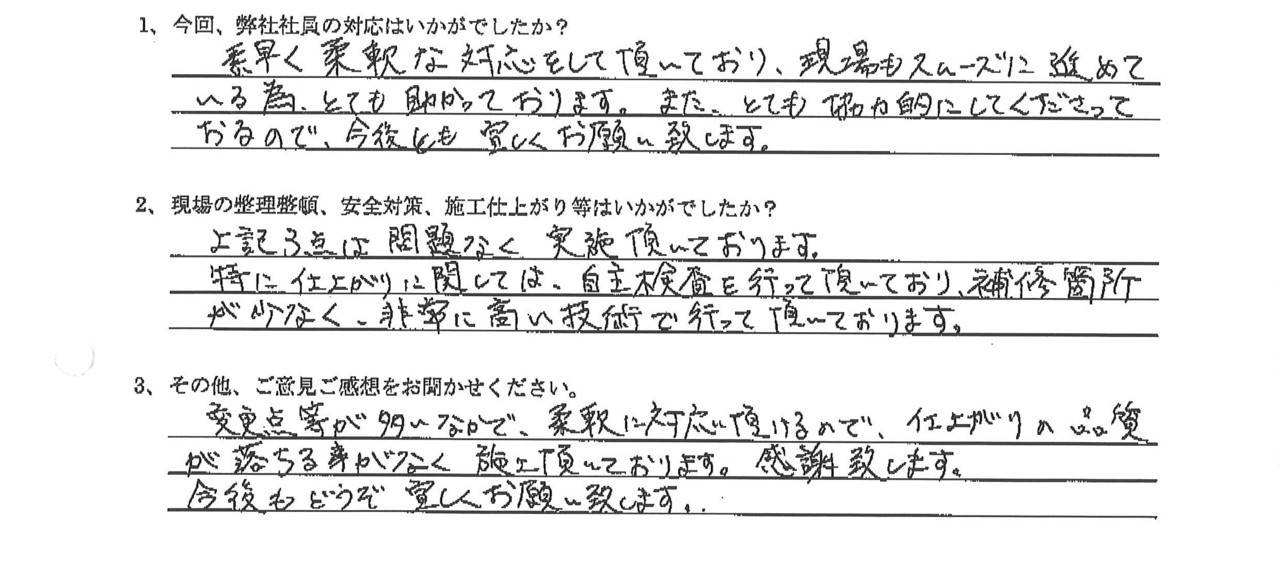 1、今回、弊社社員の対応はいかがでしたか?
素早く柔軟な対応をして頂いており、現場もスムーズに進めて
いる為、とても助かっております。また、とても協力的にしてくださって
おるので、今後とも宜しくお願い致します。
2、現場の整理整頓、安全対策、施工仕上がり等はいかがでしたか?
上記3点は問題なく実施頂いております。
特に仕上がりに関しては、自主検査を行って頂いており、補修箇所
が少なく、非常に高い技術で行って頂いております。
3、その他、ご意見ご感想をお聞かせください。
変更点等が多いなかで、柔軟に対応頂けるので、仕上がりの品質
が落ちる事がなく施工頂いております。感謝致します。
今後もどうぞ宜しくお願い致します。